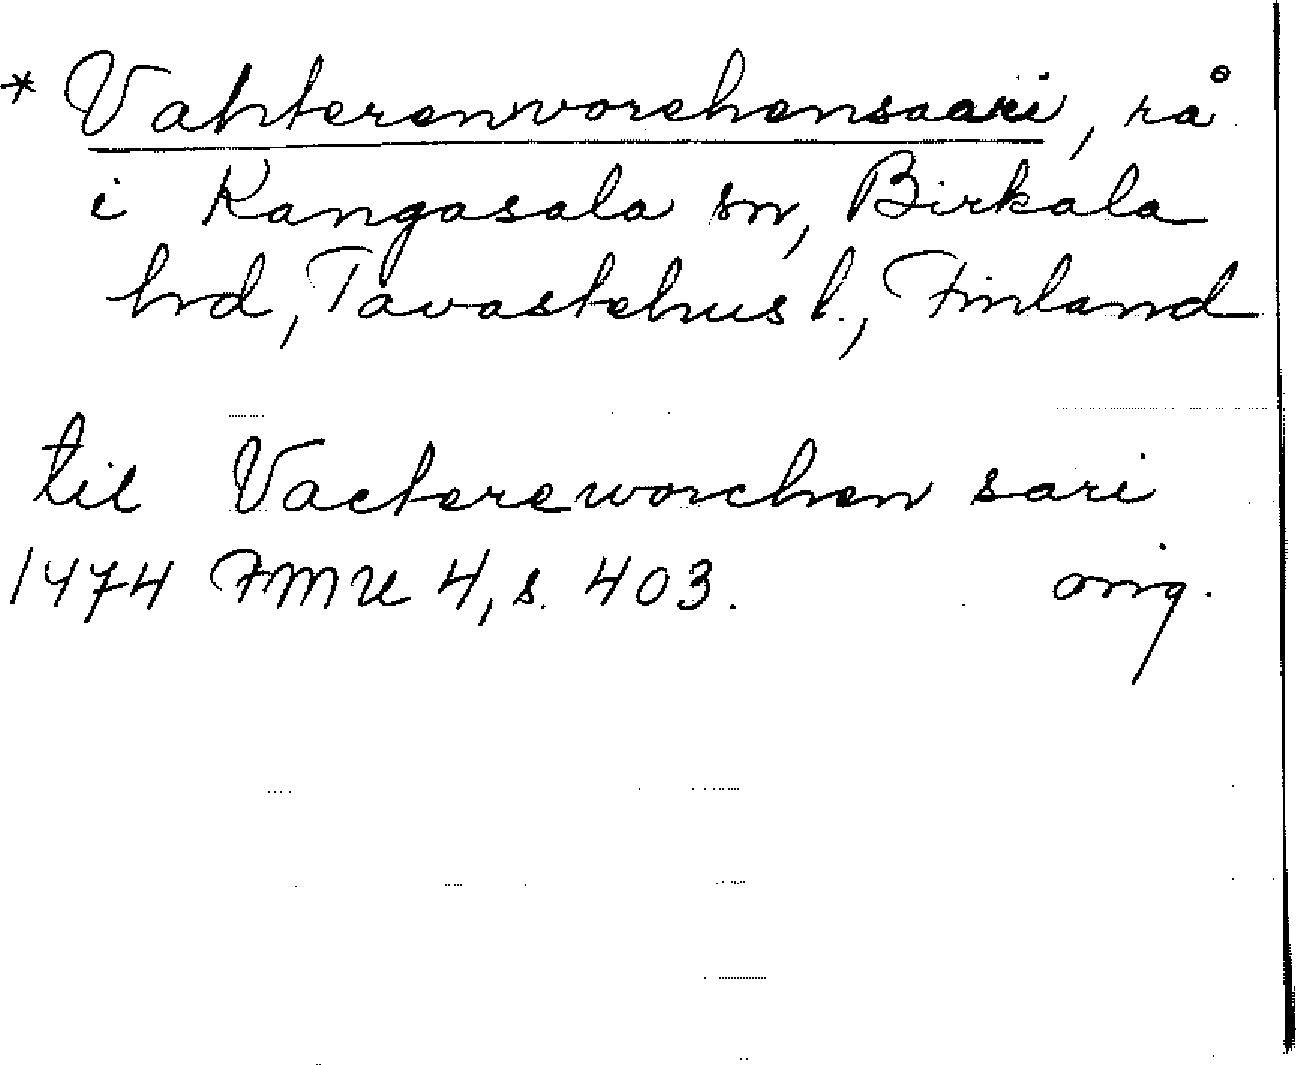 * Vahterenvorehensaari, rå
i Kangasala sn, Birkala
hrd, Tavastehus l., Finland
til Vactereworchen sari
1474 FMU 4, s. 403. orig.